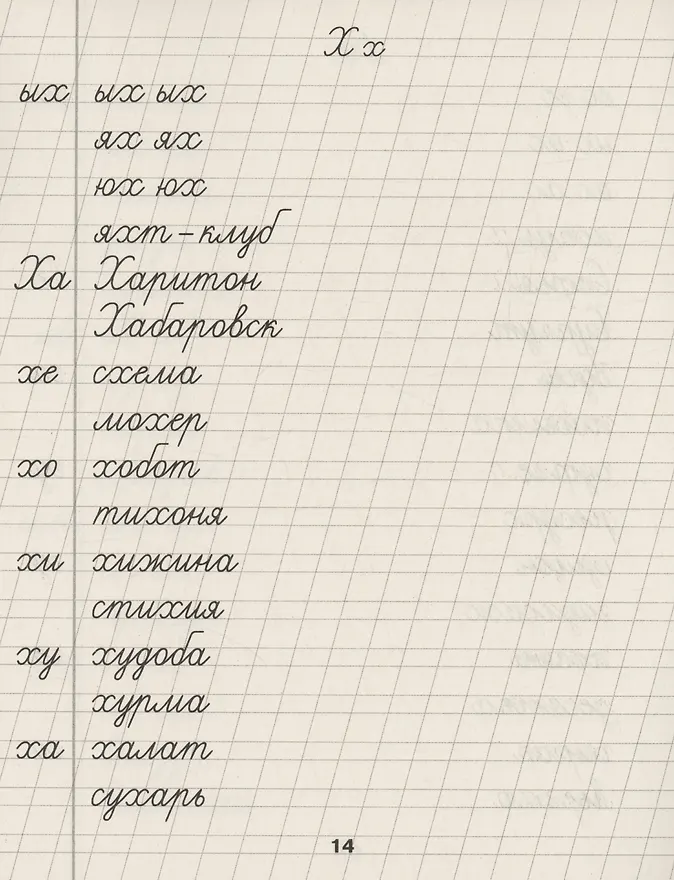 Х х
ых ых ых
ях ях
юх юх
яхт – клуб
Ха Харитон
Хабаровск
хе схема
мохер
хо хобот
тихоня
хи хижина
стихия
ху худоба
хурма
ха халат
сухарь
14